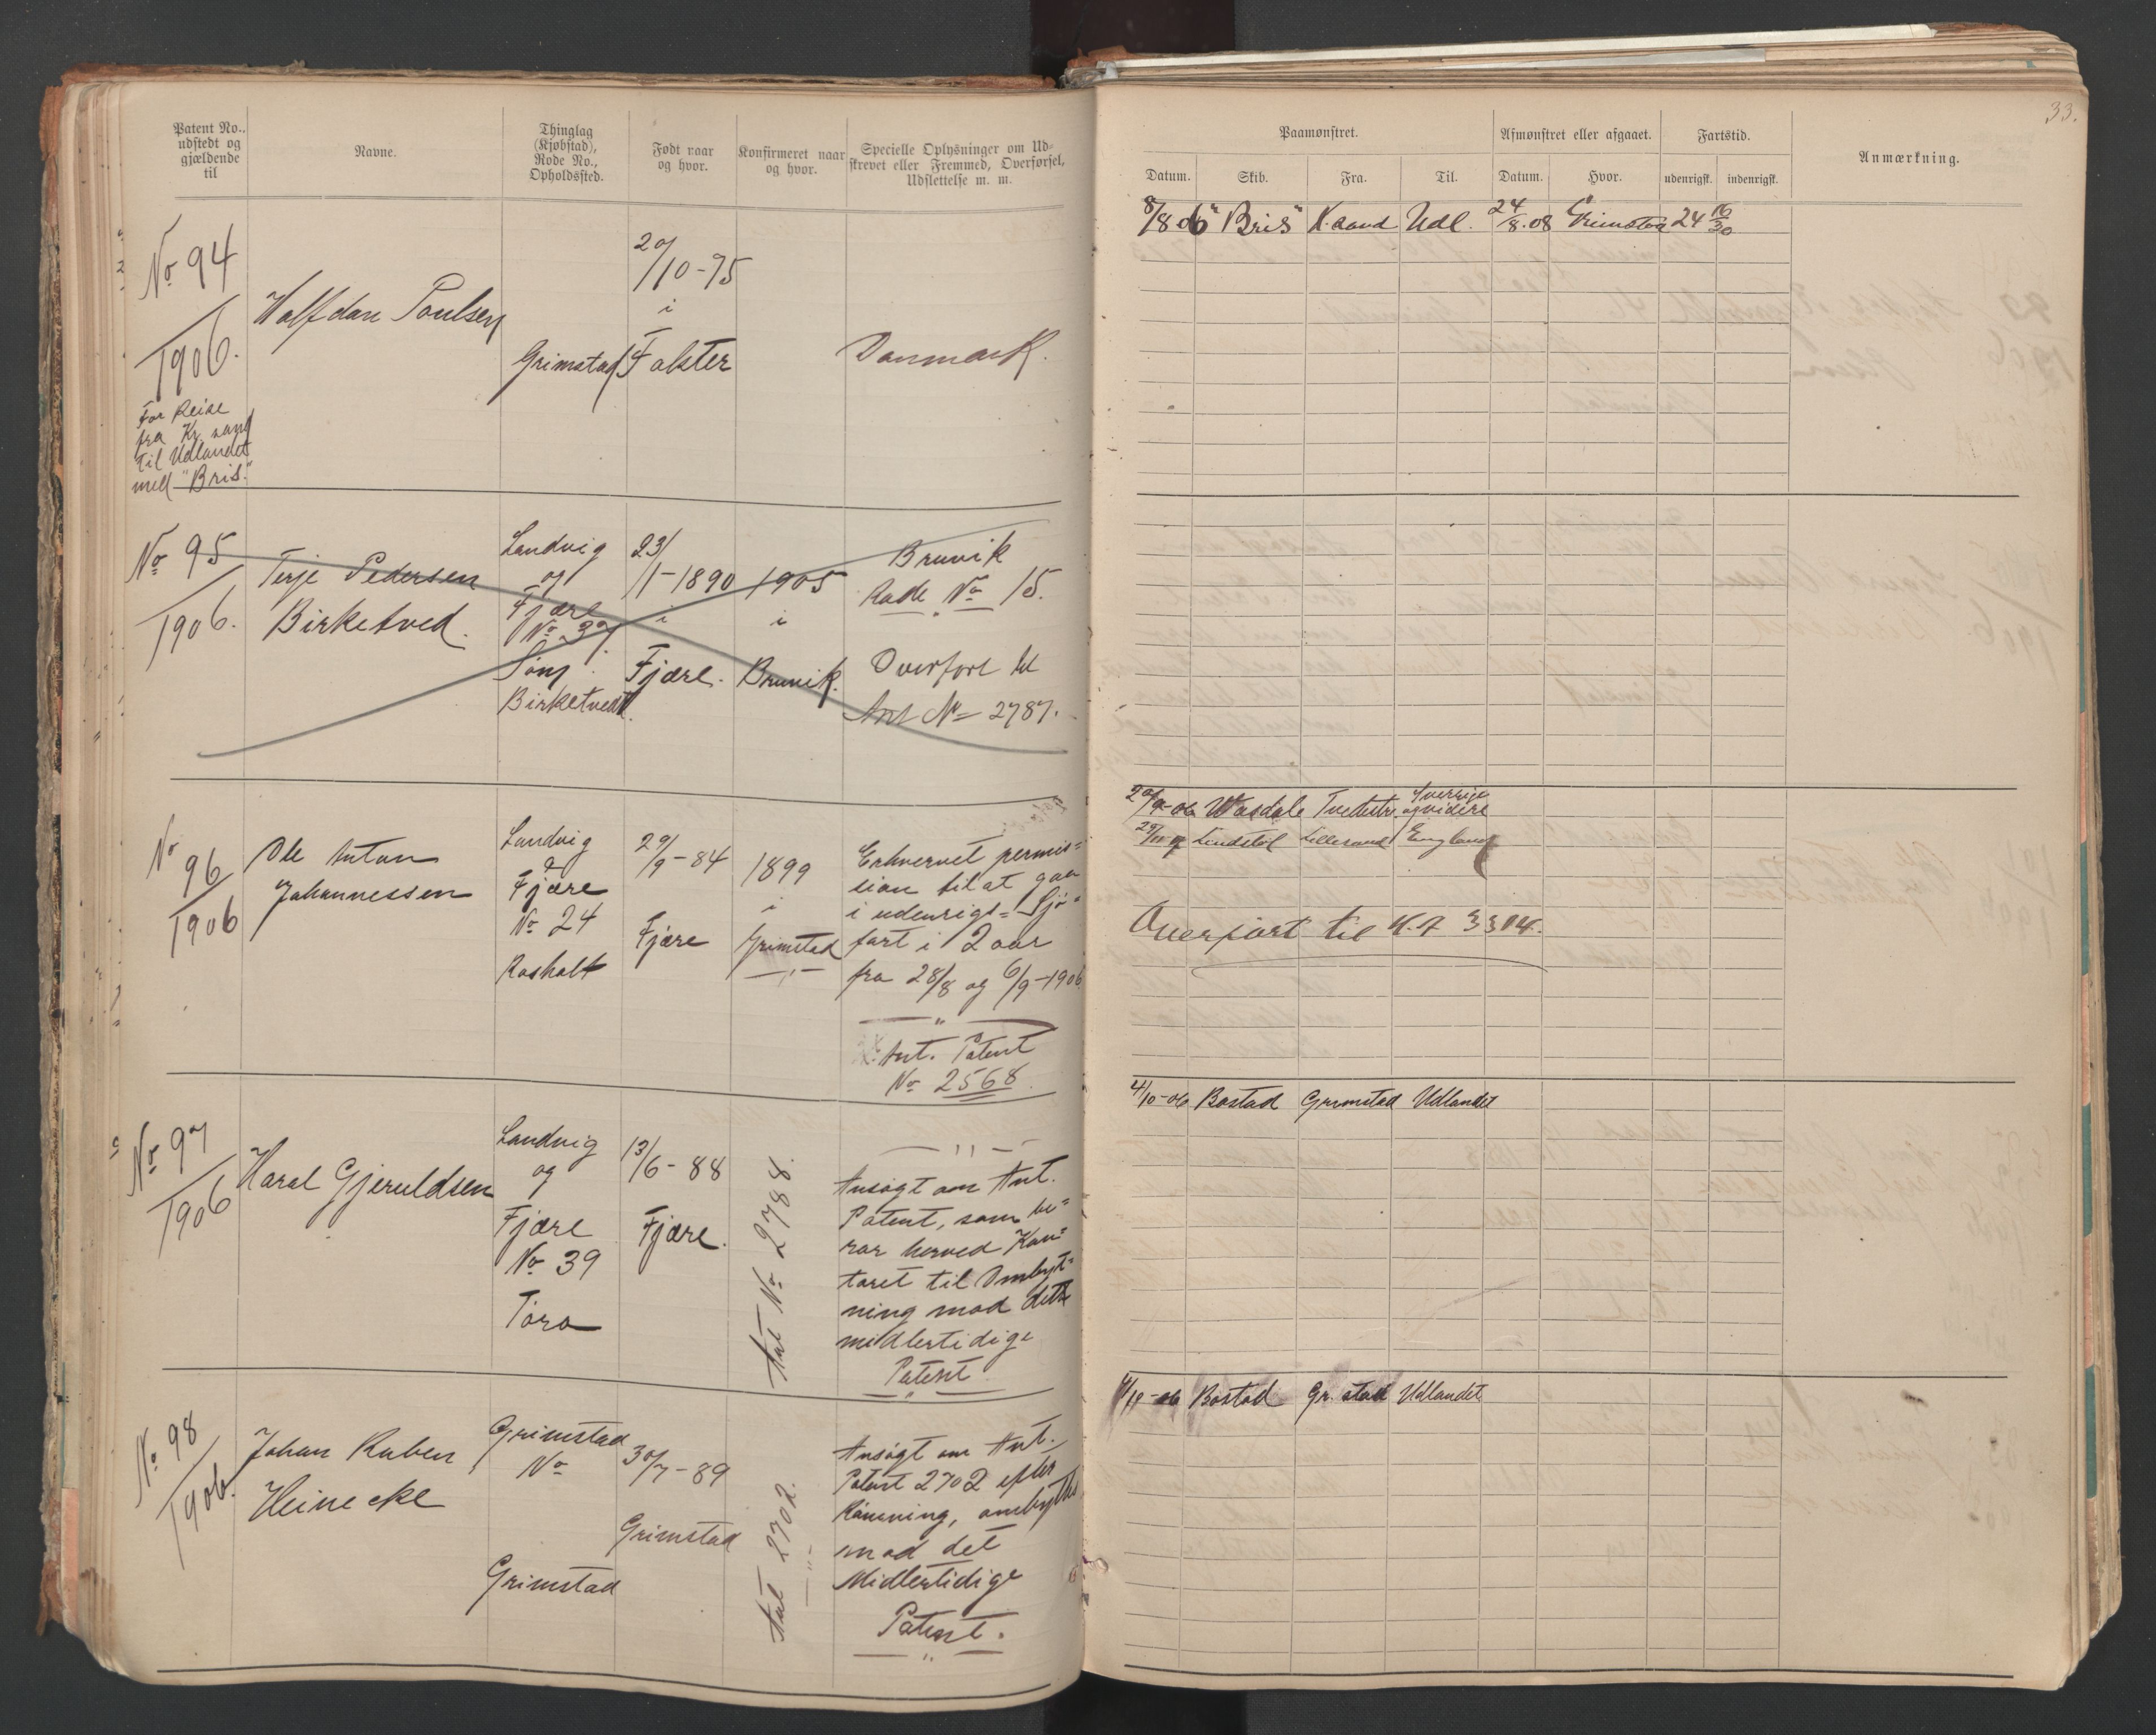 Patent No.,
udstedt og
gjældende
til
Navne.
Thinglag
(Kjøbstad),
Rode No.,
Opholdssted.
Født naar
og hvor.
Konfirmeret naar
og hvor.
Specielle Oplysninger om Ud-
skrevet eller Fremmed, Overførsel,
Udslettelse m. m.
No 94
1906.
For Reise
fra Kr. sand
til Udlandet
med "Bris."
Halfdan Poulsen
Grimstad
20/10-75
i
Falster
Danmark.
No 95
1906.
Terje Pedersen
Birketved.
Landvig
og
Fjære
No 37
Søm
Birketvedt
23/1-1890
i
Fjære.
1905
i
Bruvik.
Bruvik
Rode No 15.
Overført til
Ant No 2787.
No
96
1906
Ole Anton
Johannessen
Landvig
og
Fjære
No 24
Rosholt
29/9-84
Fjære
1899
i
Grimstad
Erhvervet permis=
sion til at gaa
i udenrigs= Sjø=
fart i 2 aar
fra 28/8 og 6/9-1906
Ant. Patent
No 2568.
No 97
1906
Haral Gjeruldsen
Landvig
og
Fjære
No 39
Tøra
13/6-88
Fjære.
Ant No 2788.
Ansøgt om Ant.
Patent, som be=
ror herved Kon=
toret til Ombyt=
ning mod dette
midlertidige
Patent.
No 98
1906.
Johan Ruben
Heinecke
Grimstad
No
Grimstad
30/7-89
Grimstad
Ant 2702.
Ansøgt om Ant.
Patent 2702 efter
Rømning, ombyttes
mod det
Midlertidige
Patent.
33.
Paamønstret.
Afmønstret eller afgaaet.
Fartstid.
Anmærkning.
Datum.
Skib.
Fra.
Til.
Datum.
Hvor.
udenrigsk.
indenrigsk.
8/8 06 "Bris" K.sand Udl. 24/8.08 Grimstad 24 16/30
20/9-06 Wasdale Tvedestr. Sverrige
og videre
Lindstøl Lillesand England
Overført til U.A 3304.
4/10-06 Bostad Grimstad Udlandet
Bostad Gr.stad Udlandet